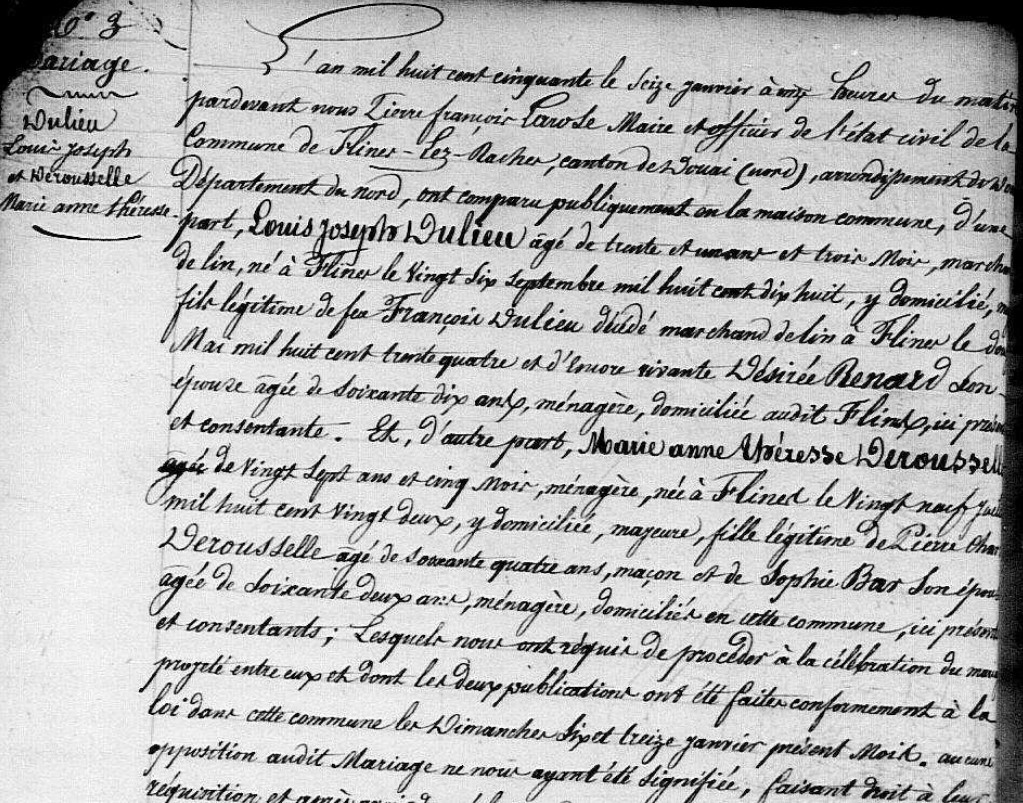 N° 3
Mariage.
Dulieu
Louis Joseph
et Derousselle
Marie anne théresse.
L'an mil huit cent cinquante le seize janvier à onze heures du matin
pardevant nous Pierre françois Larose Maire et officier de l'état civil de la
Commune de Flines-Lez-Raches, canton de Douai (nord), arrondissement de
Département du nord, ont comparu publiquement en la maison commune, d'une
part, Louis Joseph Dulieu âgé de trente et un ans et trois Mois, marchand
de lin, né à Flines le Vingt Six Septembre mil huit cent dix huit, y domicilié,
fils légitime de feu François Dulieu décédé marchand de lin à Flines le
Mai mil huit cent trente quatre et d'Encore vivante Désirée Renard Son
épouse âgée de Soixante dix ans, ménagère, domiciliée audit Flines, ici présente
et consentante. Et, d'autre part, Marie anne thérèsse Derousselle
agée de Vingt Sept ans et cinq Mois, ménagère, née à Flines le Vingt neuf
mil huit cent Vingt deux, y domiciliée, majeure, fille légitime de Pierre
Derousselle agé de soixante quatre ans, maçon et de Sophie Bar Son épouse
agée de Soixante deux ans, ménagère, domiciliés en cette commune, ici présents
et consentants; Lesquels nous ont réquis de procéder à la célébration du
projeté entre eux et dont les deux publications ont été faites conformement à la
loi dans cette commune les Dimanches Six et treize janvier présent Mois. aucune
opposition audit Mariage ne nous ayant été Signifiée, faisant droit à leur
réquisition et après